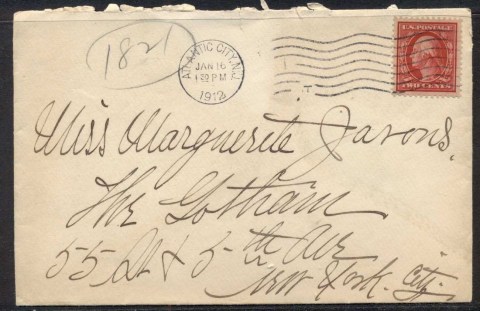 1821
ATLANTIC CITY, N.J.
JAN 16
1 30 P M
1912
U.S. POSTAGE
TWO CENTS
Miss Marguerite Javons,
The Gotham
55 St & 5th Ave
New York City